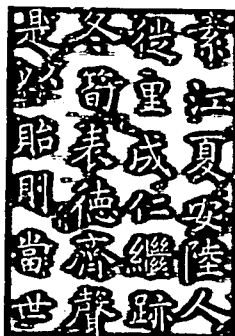 素江夏安陸人
從重成仁繼跡
冬筍表德齊聲
是以貽則當世